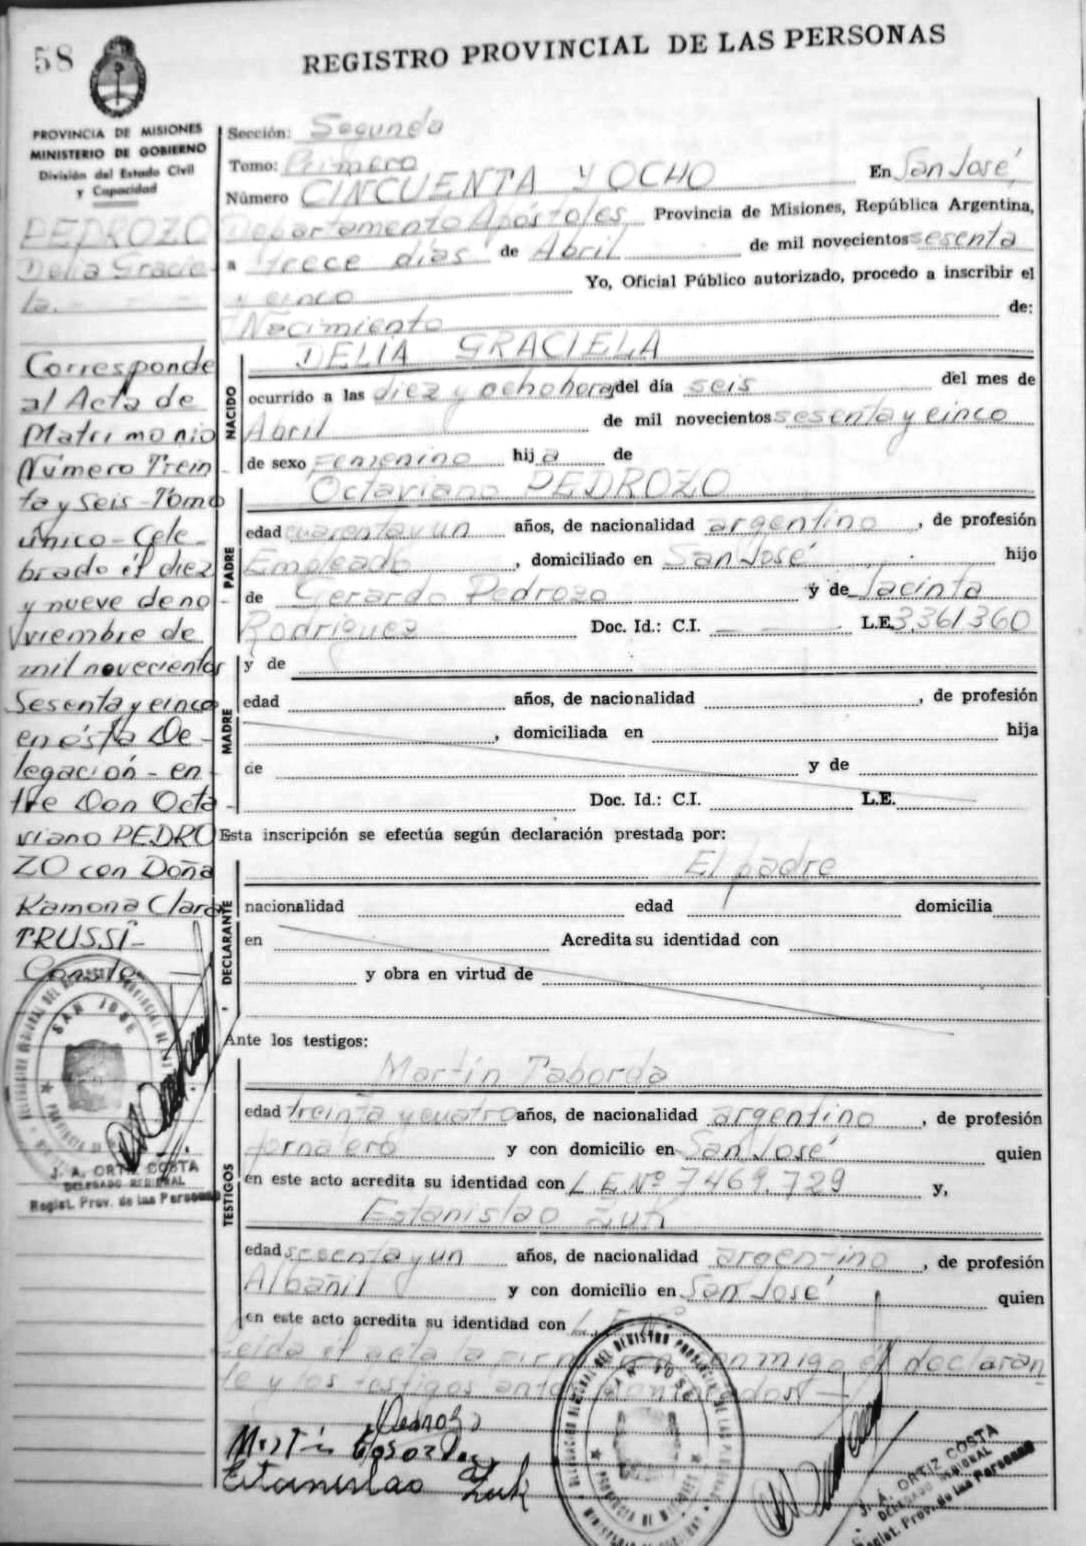 58
REGISTRO PROVINCIAL DE LAS PERSONAS
PROVINCIA DE MISIONES
MINISTERIO DE GOBIERNO
División del Estado Civil
y Capacidad
PEDROZO
Delia Gracie
la. - - -
Corresponde
al Acta de
Matrimonio
Número Trein
ta y seis - Tomo
único - Cele
brado el diez
y nueve de no
viembre de
mil novecientos
Sesenta y cinco
en ésta De -
legación - en
tre Don Octa
viano PEDRO
ZO con Doña
Ramona Clara
TRUSSI -
Conste
SAN JOSE
J. A. ORTIZ COSTA
DELEGADO REGIONAL
Regist. Prov. de las Personas
Sección: Segunda
Tomo: Primero
Número CINCUENTA Y OCHO En San José,
Departamento Apóstoles Provincia de Misiones, República Argentina,
a trece días de Abril de mil novecientos sesenta
y cinco Yo, Oficial Público autorizado, procedo a inscribir el
Nacimiento de:
NACIDO
DELIA GRACIELA
ocurrido a las diez y ocho horas del día seis del mes de
Abril de mil novecientos sesenta y cinco
de sexo Femenino hij a de
PADRE
Octaviano PEDROZO
edad cuarenta y un años, de nacionalidad argentino, de profesión
Empleado, domiciliado en San José hijo
de Gerardo Pedrozo y de Jacinta
Rodriguez Doc. Id.: C.I. L.E. 3.361.360
MADRE
y de
edad años, de nacionalidad , de profesión
, domiciliada en hija
de y de
Doc. Id.: C.I. L.E.
Esta inscripción se efectúa según declaración prestada por:
DECLARANTE
El padre
nacionalidad edad domicilia
en Acredita su identidad con
y obra en virtud de
Ante los testigos:
TESTIGOS
Martín Taborda
edad treinta y cuatro años, de nacionalidad argentino, de profesión
Jornalero y con domicilio en San José quien
en este acto acredita su identidad con L.E.Nº 7469.729 y,
Estanislao Zuk
edad sesenta y un años, de nacionalidad argentino, de profesión
Albañil y con domicilio en San José quien
en este acto acredita su identidad con L.E.Nº
Leida el acta la conmigo el declaran
te y los testigos
Pedrozo
Estanislao Zuk
SAN JOSE
PROVINCIA DE MISIONES
J. A. ORTIZ COSTA
DELEGADO REGIONAL
Regist. Prov. de las Personas